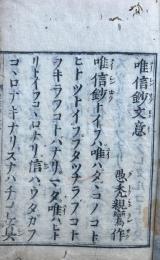 唯信鈔文意
愚禿親鸞作
唯信鈔トイフハ唯ハタヽコノコト
ヒトツトイフフタツナラフコト
ヲキラフコトハナリマタ唯ハヒト
リトイフコヽロナリ信ハウタカフ
コヽロナキナリスナハチコレ眞